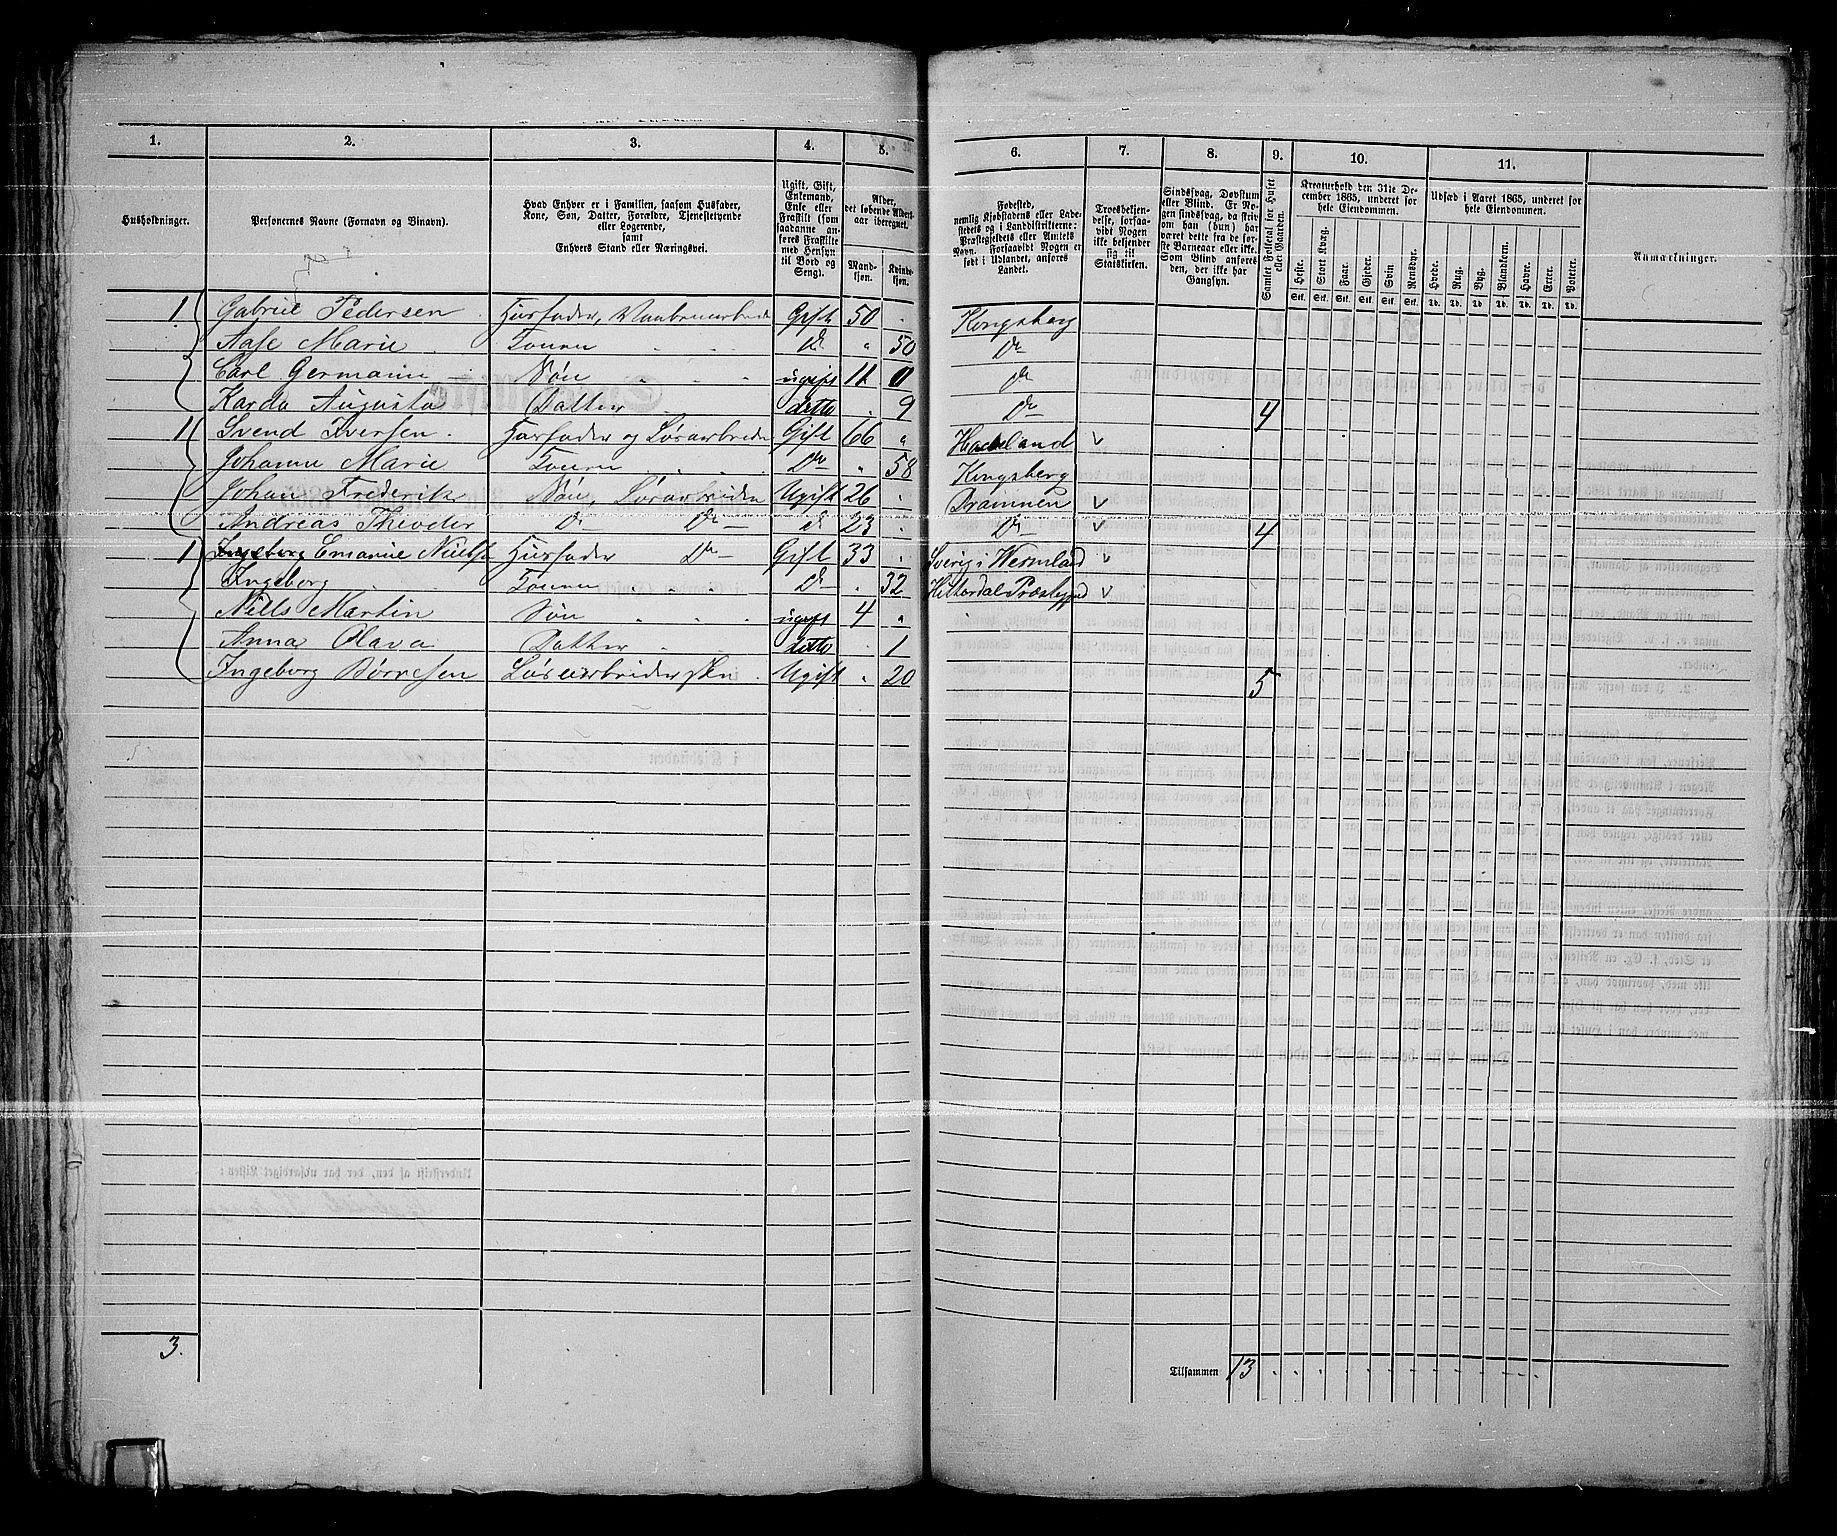 1. 2. 3. 4. 5. 6. 7. 8. 9. 10. 11.
Husholdninger.
Personernes Navne (Fornavn og Binavn).
Hvad Enhver er i Familien, saasom Husfader, Kone, Søn, Datter, Forældre, Tjenestetyende eller Logerende, samt Enhvers Stand eller Næringsvei.
Ugift, Gift, Enkemand, Enke eller Fraskilt (som saadanne anføres Fraskilte med Hensyn til Bord og Seng).
Alder, det løbende Aldersaar iberegnet.
Mandkjøn. Kvindkjøn.
Fødested, nemlig Kjøbstadens eller Ladestedets og i Landdistrikterne: Præstegjeldets eller Amtets Navn. Forsaavidt Nogen er født i Udlandet, anføres Landet.
Troesbekjendelse, forsaavidt Nogen ikke bekjender sig til Statskirken.
Sindssvag, Døvstum eller Blind. Er Nogen sindssvag, da skriv om han (hun) har været dette fra de første Barneaar eller ikke. Som Blind anføres den, der ikke har Gangsyn.
Samlet Folketal for Huset eller Gaarden.
Kreaturhold den 31te December 1865, underet for hele Eiendommen.
Heste. Stort Kvæg. Faar. Gjeder. Svin Rensdyr.
Udsæd i Aaret 1865, underet for hele Eiendommen.
Hvede. Rug. Byg. Blandkorn. Havre. Erter. Poteter.
Stk. Stk. Stk. Stk. Stk. Stk. Td. Td. Td. Td. Td. Td. Td.
Anmærkninger.
1 Gabriel Pedersen Husfader, Gift 50 Kongsberg
Aase Marie Konen D 50 Do
Carl Germann Søn ugift 11 Do
Karda Augusta Datter ditto 9 Do 4
1 Svend Iversen Husfader og Løsarbeider Gift 66 Hadeland
Johanne Marie Konen Do 58 Kongsberg
Johan Frederik Søn, Løsarbeider Ugift 26 Drammen
Andreas Theoder D Do D 23 Do 4
1 Ingeborg Emanuel Nielsen Husfader Do Gift 33 Sverig i Wermland
Ingeborg Konen D 32 Hitterdal Præstegjeld
Niels Martin Søn ugift 4
Anna Olava Datter ditto 1
Ingeborg Løsarbeiderske Ugift 20 5
3.
Tilsammen 13